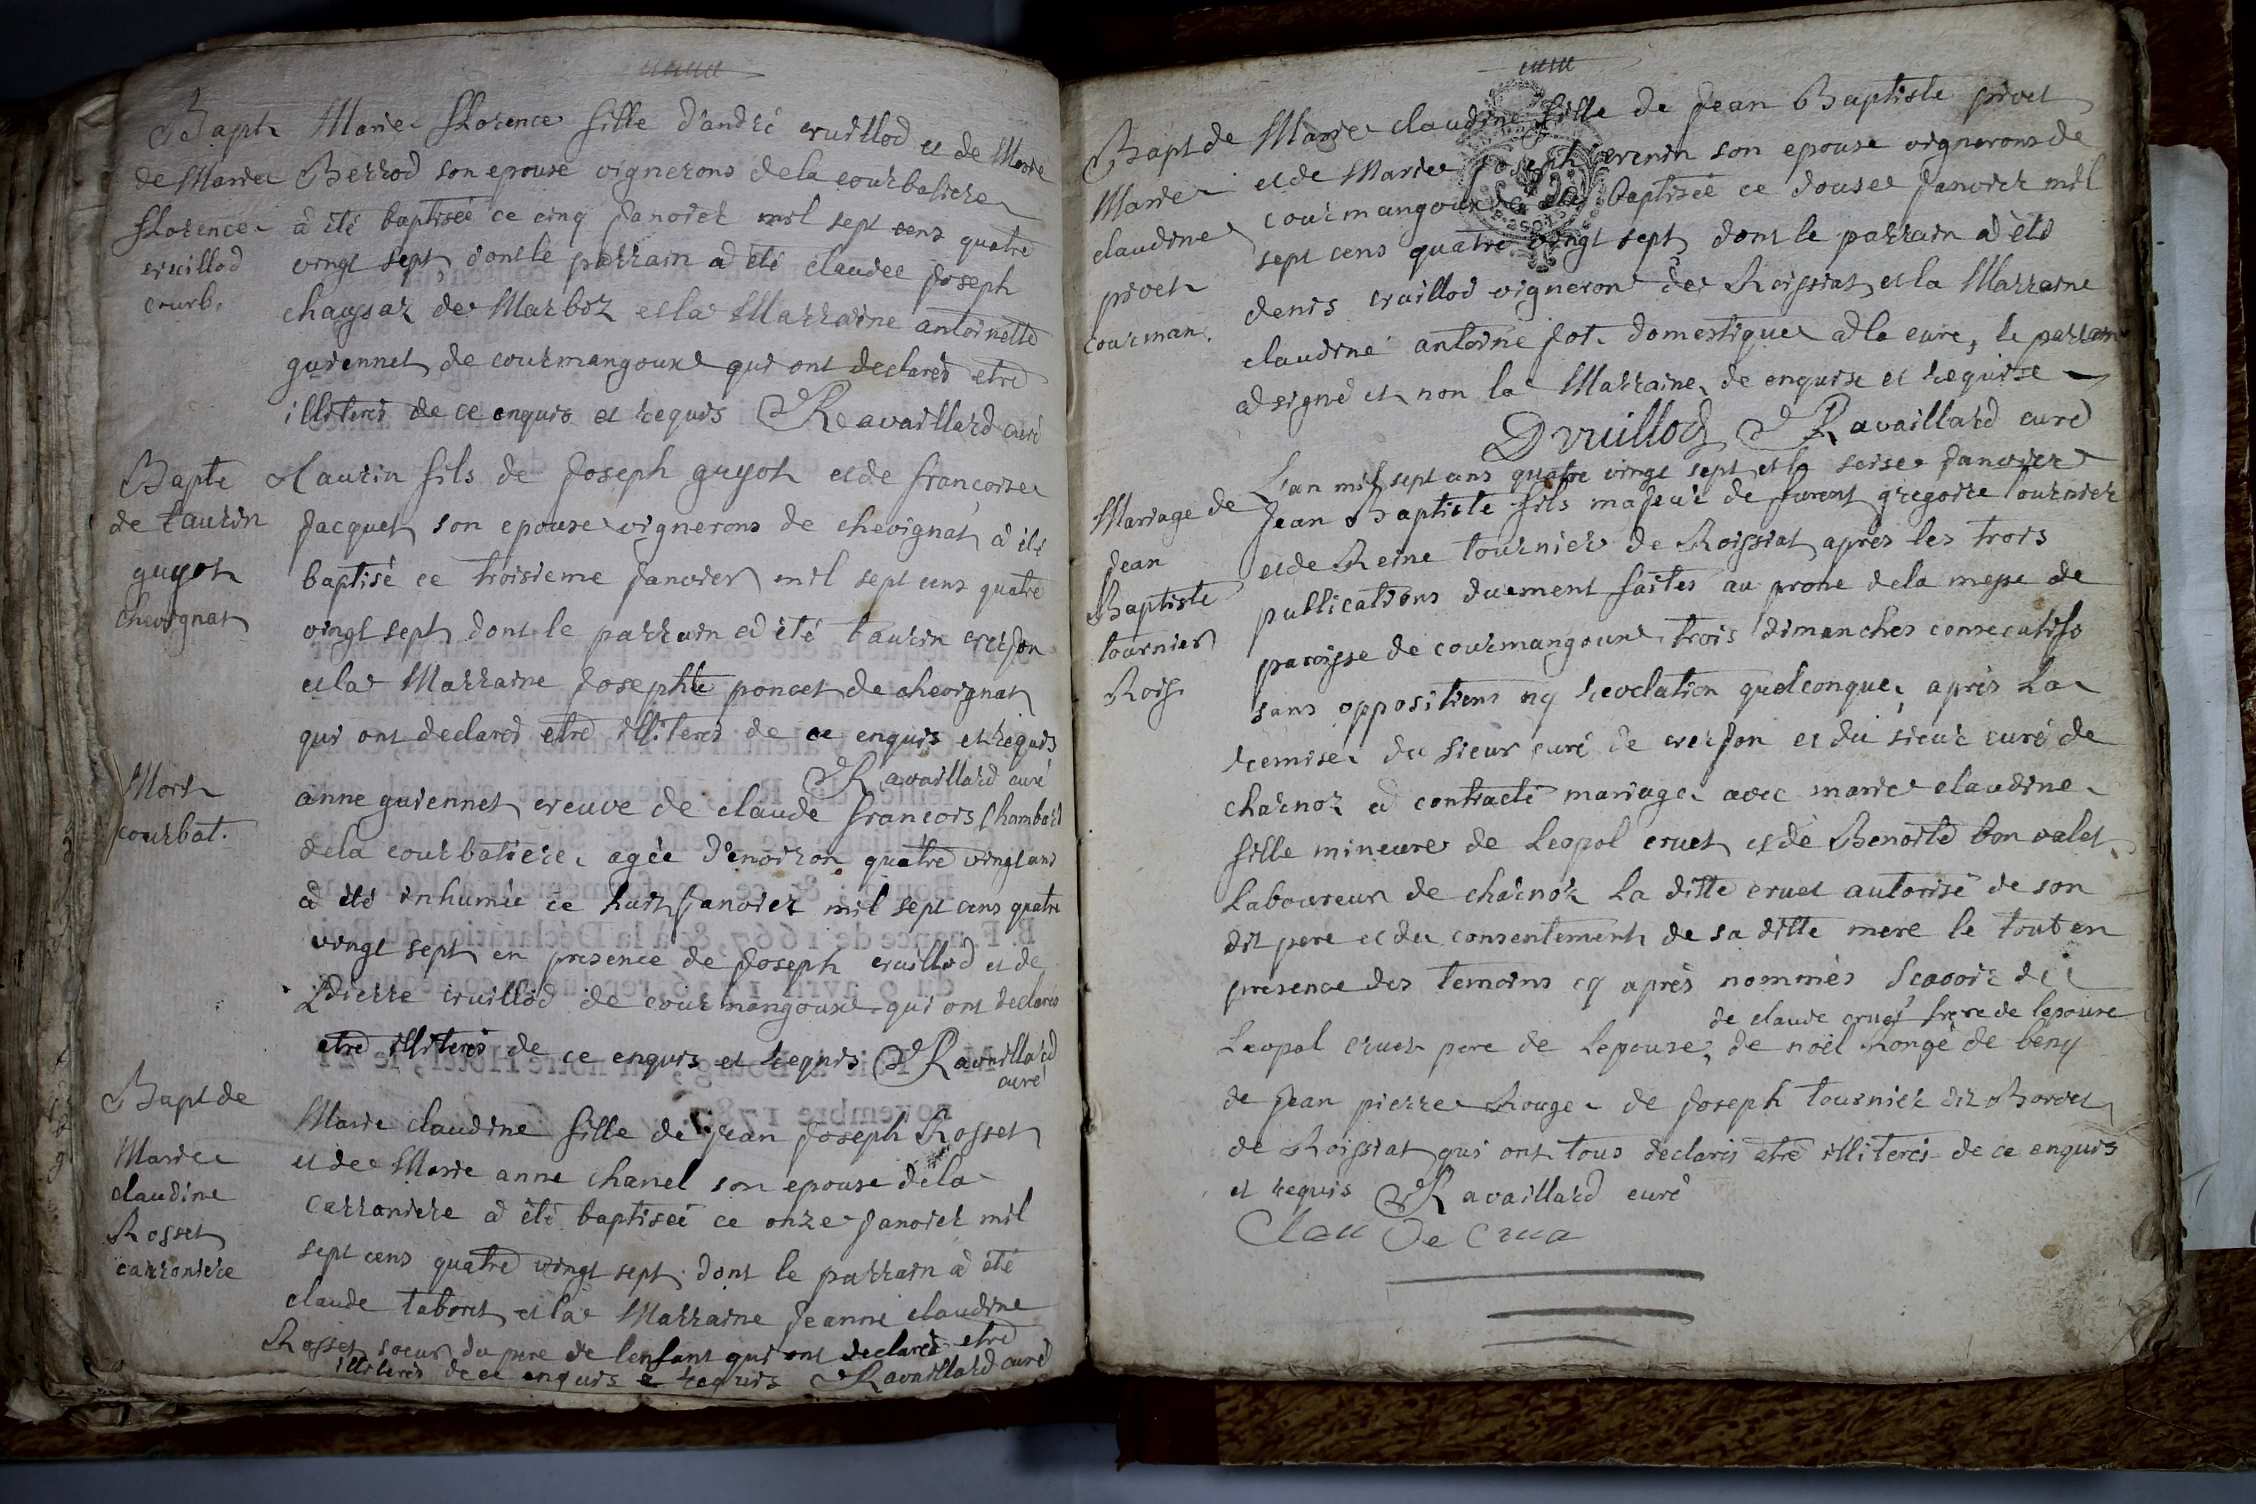 Bapt
de Marie
florence
cruillod
courb.
Marie florence fille d'andré cruillod et de Marie
Berrod son epouse vignerons de la courbatiere
a été baptisée ce cinq janvier mil sept cens quatre
vingt sept dont le parrain a été claude joseph
de Marboz et la Marraine antoinette
guiennet de courmangoux qui ont declarés etre
illiterés de ce enquis et requis Ravaillard curé
Bapte
de taurin
guyot
chevignat
taurin fils de joseph guyot et de francoise
jacquet son epouse vignerons de chevignat a été
baptisé ce troisieme janvier mil sept cens quatre
vingt sept dont le parrain a été taurin
et la Marraine josephte poncet de chevignat
qui ont declarés etre illiterés de ce enquis et requis
Ravaillard curé
Mort
courbat.
anne guiennet veuve de claude francois Chambard
de la courbatiere agée d'environ quatre vingt ans
a été inhumée ce huit janvier mil sept cens quatre
vingt sept en presence de joseph cruillod et de
pierre cruillod de courmangoux qui ont declarés
etre illiterés de ce enquis et requis Ravaillard
curé
Bapt de
Marie
claudine
Rosset
carroniere
Marie claudine fille de jean joseph Rosset
et de Marie anne chanel son epouse de la
carroniere a été baptisée ce onze janvier mil
sept cens quatre vingt sept dont le parrain a été
claude taboret et la Marraine jeanne claudine
Rosset soeur du pere de lenfant qui ont declarés etre
illiterés de ce enquis et requis Ravaillard curé
Bapt de
Marie
claudine
pivet
courman.
Marie claudine fille de jean Baptiste pivet
et de Marie joseph son epouse vignerons de
courmangoux a été baptisée ce douse janvier mil
sept cens quatre vingt sept dont le parrain a été
denis cruillod vigneron de Roissiat et la Marraine
claudine antoine jot domestique a la cure, le parrain
a signé et non la Marraine de enquise et requise
D vuillod Ravaillard curé
Mariage de
jean
Baptiste
tournier
Roiss.
L'an mil sept cens quatre vingt sept et le seise janvier
jean Baptiste fils majeur de gregoire tournier
et de Reine tournier de Roissiat apres les trois
publications duement faites au prone de la messe de
paroisse de courmangoux trois dimanches consecutifs
sans oppositions ny revelation quelconque, après la
remise du sieur curé de et du sieur curé de
charnoz a contracté mariage avec marie claudine
fille mineure de Leopol cruet et de Benoite bonvalet
Laboureur de charnoz La ditte cruet autorisé de son
dit pere et du consentement de sa ditte mere le tout en
presence des temoins cy après nommés scavoir de
de claude cruet frere de lepouse
Leopol cruet pere de Lepouse, de noël Rongé de beny
de jean pierre Rouge de joseph tournier dit Borcet
de Roissiat qui ont tous declarés etre illiterés de ce enquis
et requis Ravaillard curé
Clau De Crua